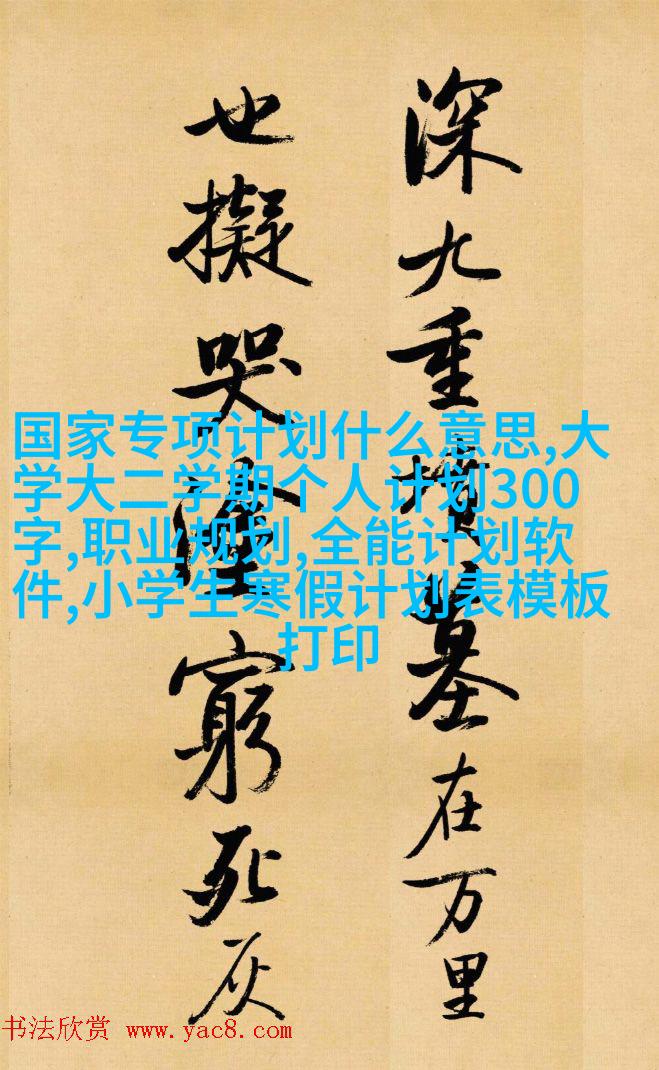 深九重墳墓在万里
也擬哭塗窮死灰
国家专项计划什么意思,大
学大二学期个人计划300
字,职业规划,全能计划软
件,小学生寒假计划表模板
打印
书法欣赏 www.yac8.com